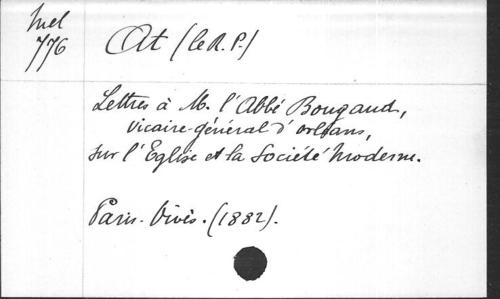 Mel
776
At (le R. P.)
Lettres à M. l'Abbé Bougaud,
vicaire-général d'orléans,
sur l'Eglise et la Société moderne.
Paris. Vivès. (1882).